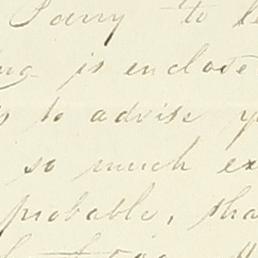 Sorry to
is enclose
to advise
so much ex
probable, tha